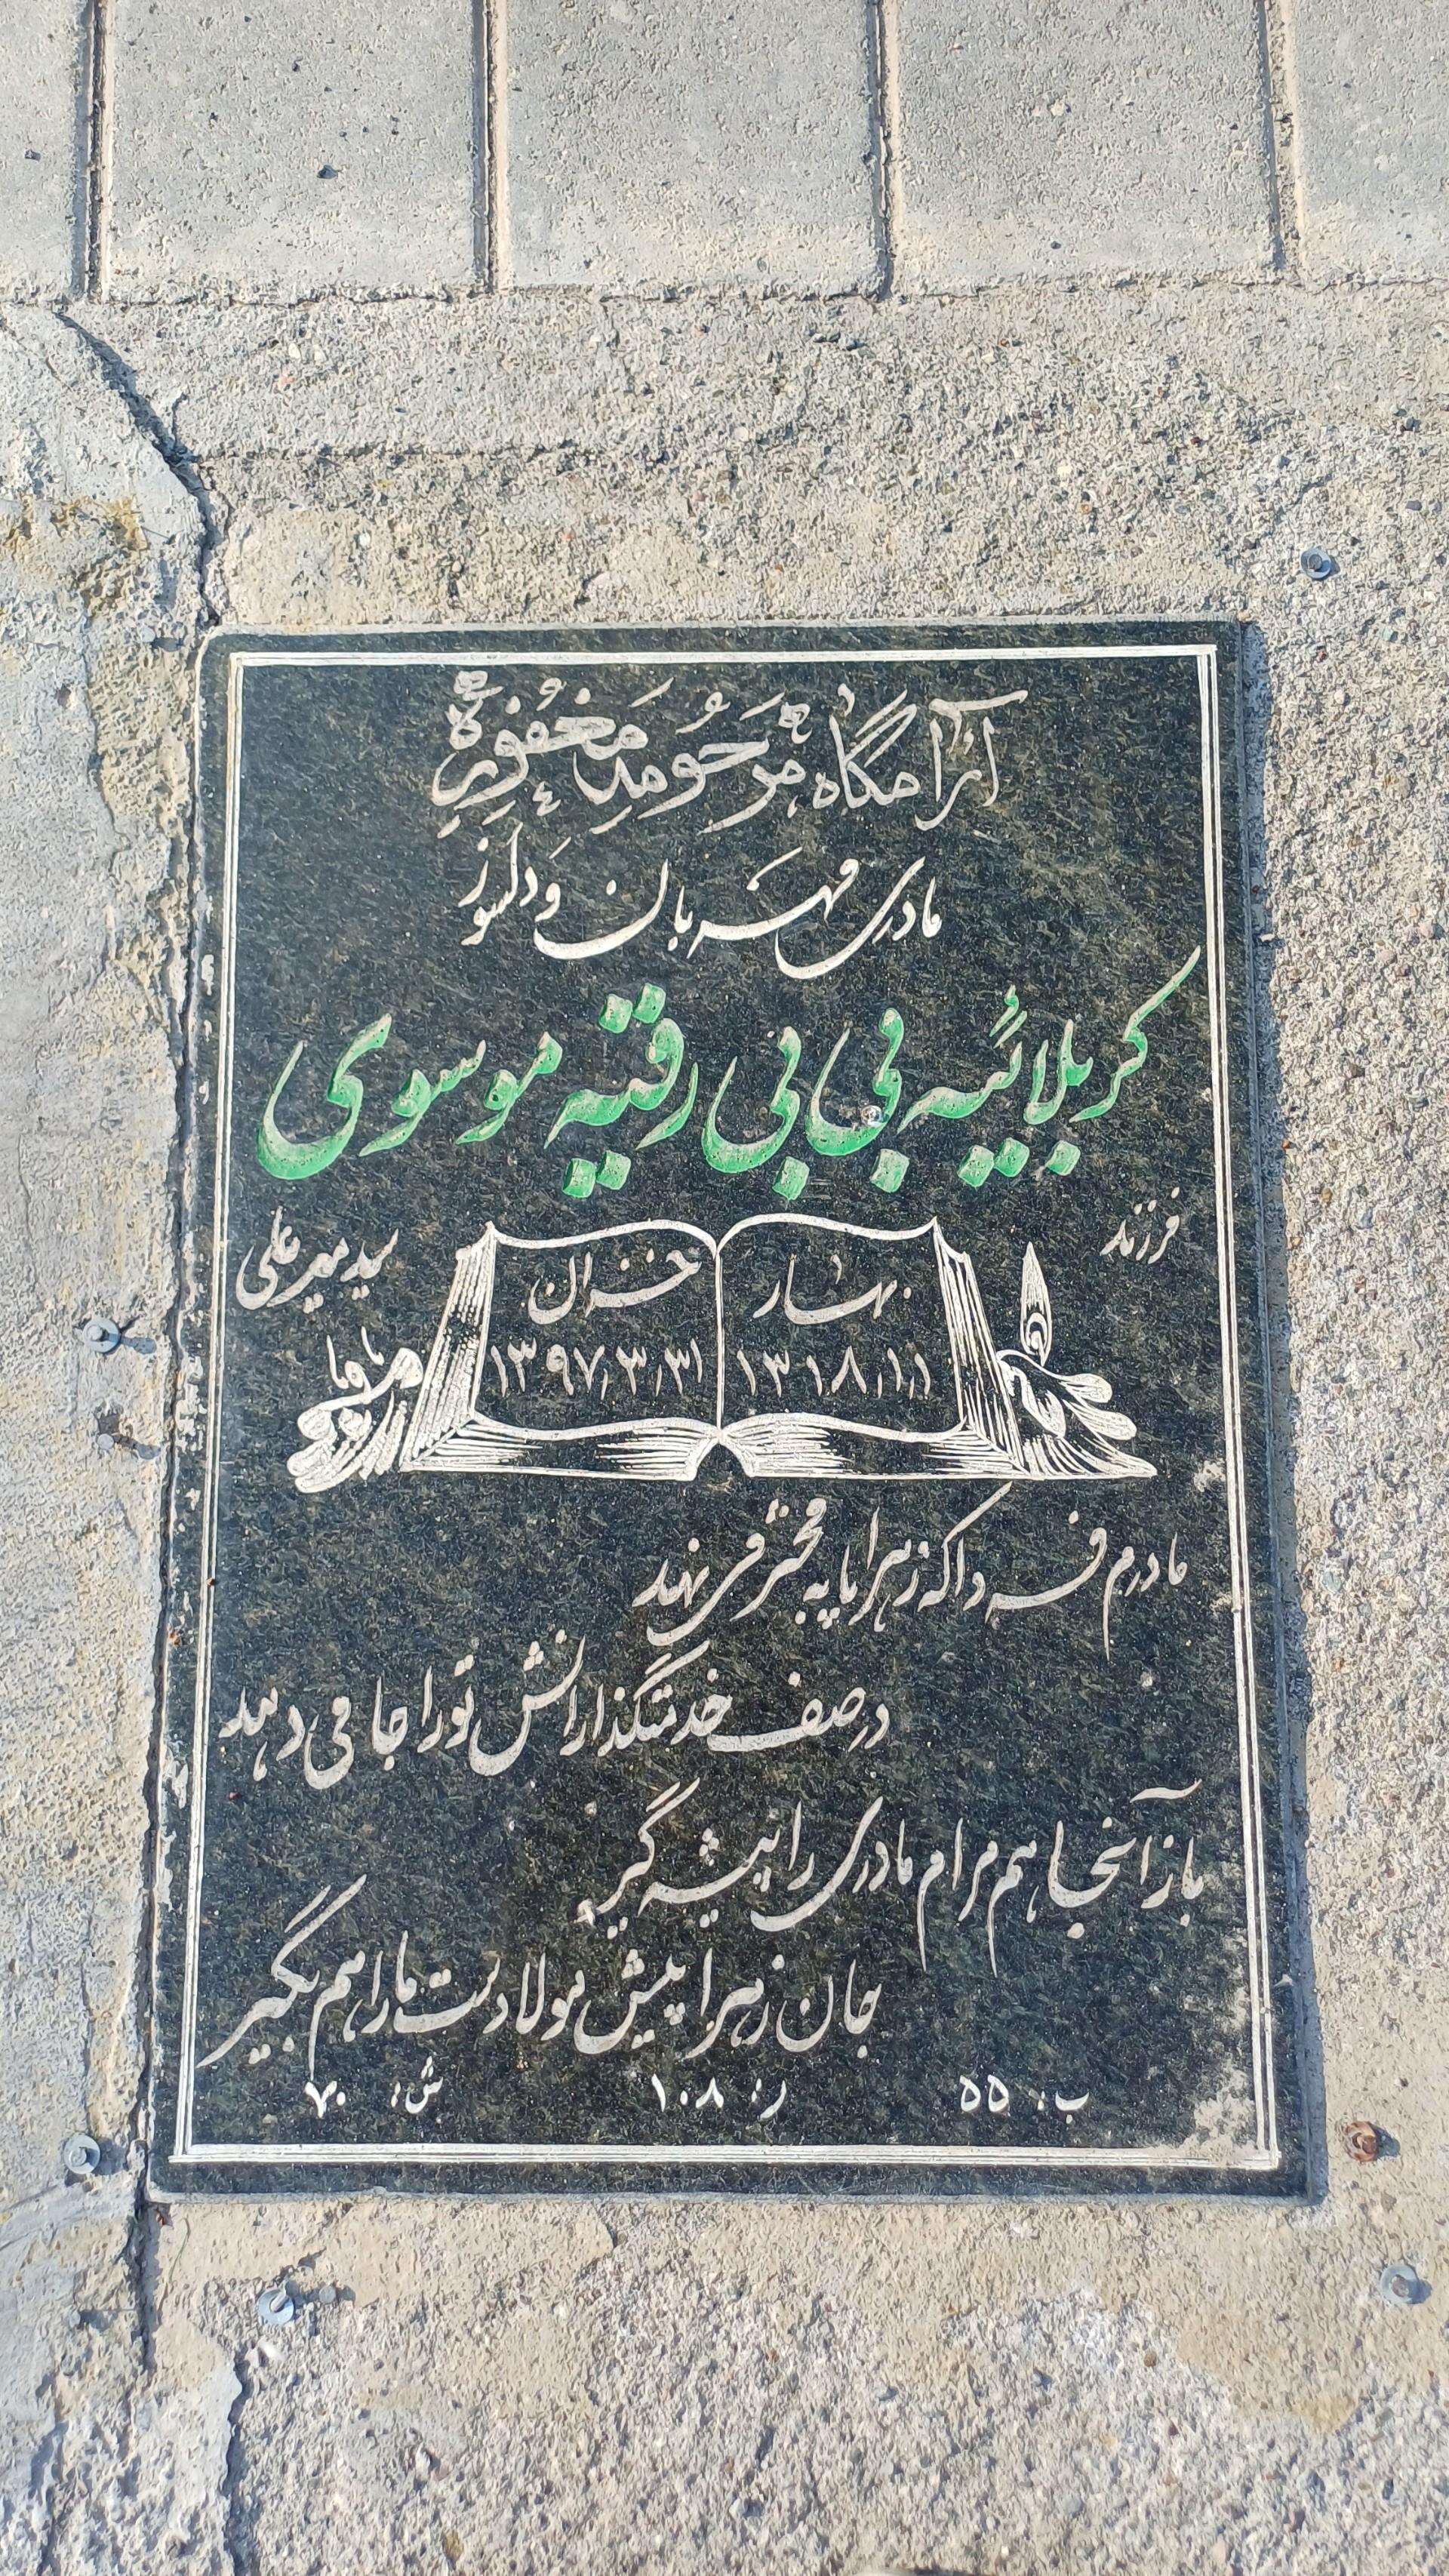 آرامگاه مرحومه مغفوره
مادری مهربان و دلسوز
کربلائیه بی بی رقیه موسوی
فرزند
سید میر علی
بهار
خزان
۱۳۱۸،۱،۱
۱۳۹۷،۳،۳۱
مادرم فردا که زهرا پا به محشر می نهد
در صف خدمتگذارانش تو را جا می دهد
باز آنجا هم مرام مادری را پیشه گیر
جان زهرا پیش مولا دست ما را هم بگیر
ب: ۵۵ ر: ۱۰۸ ش: ۷۰